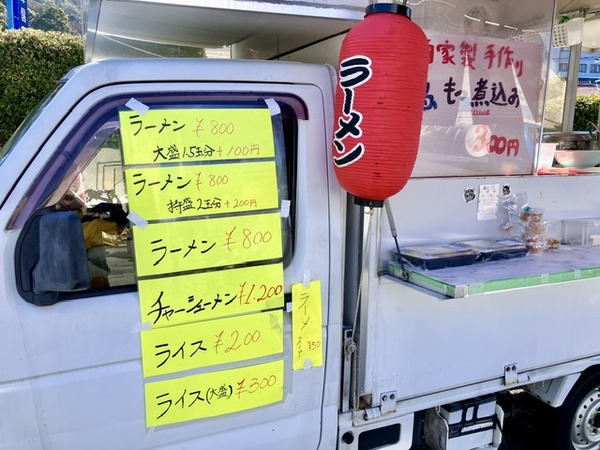 ラーメン ¥800
大盛1.5玉分+100円
ラーメン ¥800
特盛2玉分+200円
ラーメン ¥800
チャーシューメン ¥1.200
ライス ¥200
ライス(大盛) ¥300
ラーメン
自家製 手作り
もつ煮込み
800円